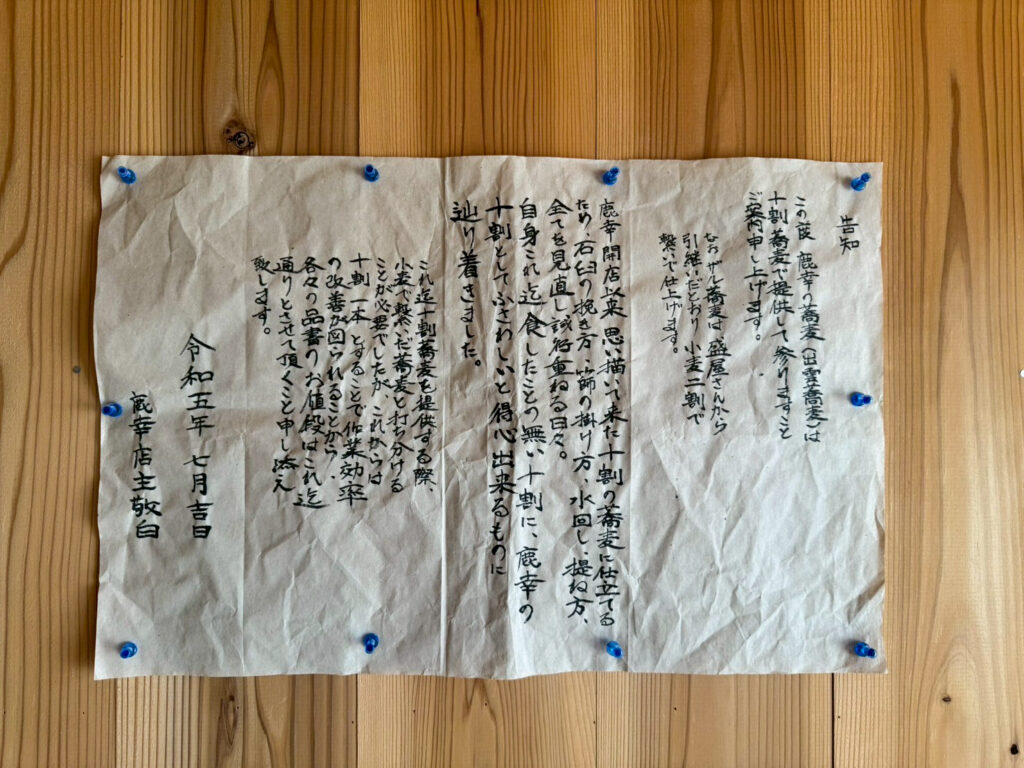 告知
この度 鹿幸の蕎麦(出雲蕎麦)は
十割蕎麦で提供して参りますこと
ご案内申し上げます。
なおザル蕎麦は盛屋さんから
引継いだとおり小麦二割で
繋いで仕上げます。
鹿幸開店以来 思い描いて来た十割の蕎麦に仕立てる
ため 石臼の挽き方、篩の掛け方、水回し、捏ね方、
全てを見直し試行重ねる日々。
自身これ迄食したことの無い十割に、鹿幸の
十割としてふさわしいと得心出来るものに
辿り着きました。
これ迄十割蕎麦を提供する際、
小麦で繋いだ蕎麦と打ち分ける
ことが必要でしたが、これからは
十割一本とすることで作業効率
の改善が図られることから、
各々の品書のお値段はこれ迄
通りとさせて頂くこと申し添え
致します。
令和五年 七月吉日
鹿幸店主敬白